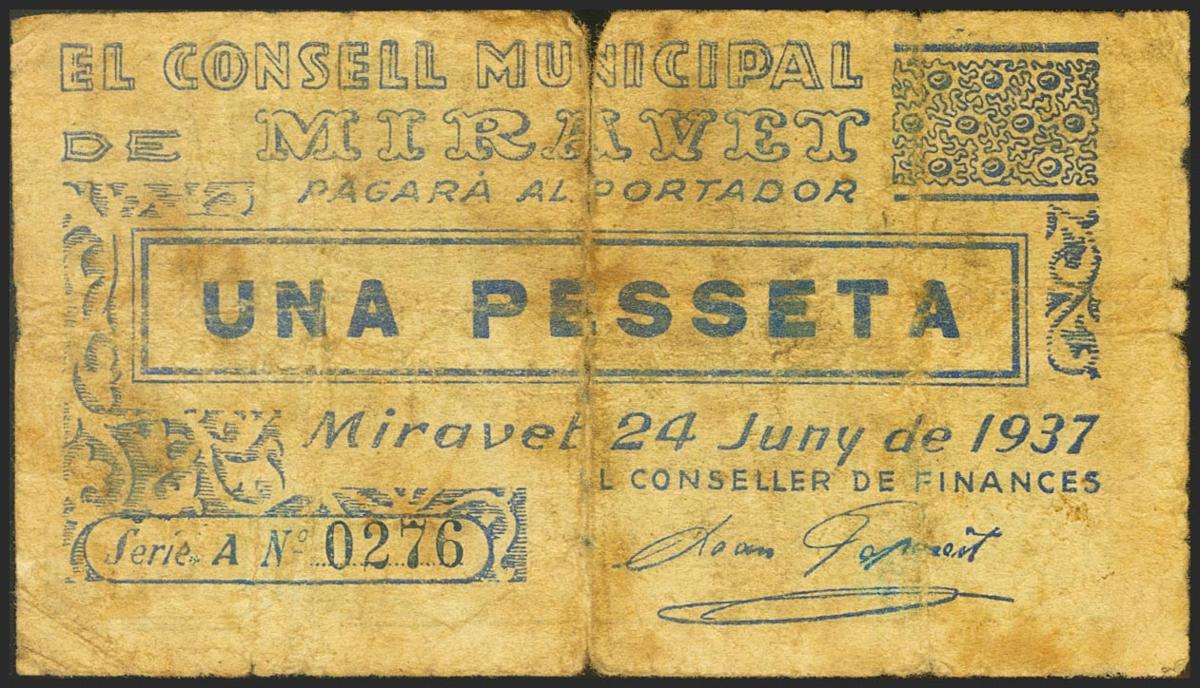 EL CONSELL MUNICIPAL
DE MIRAVET
PAGARÀ AL PORTADOR
UNA PESSETA
Miravet 24 Juny de 1937
L CONSELLER DE FINANCES
Serie A Nº 0276
Joan